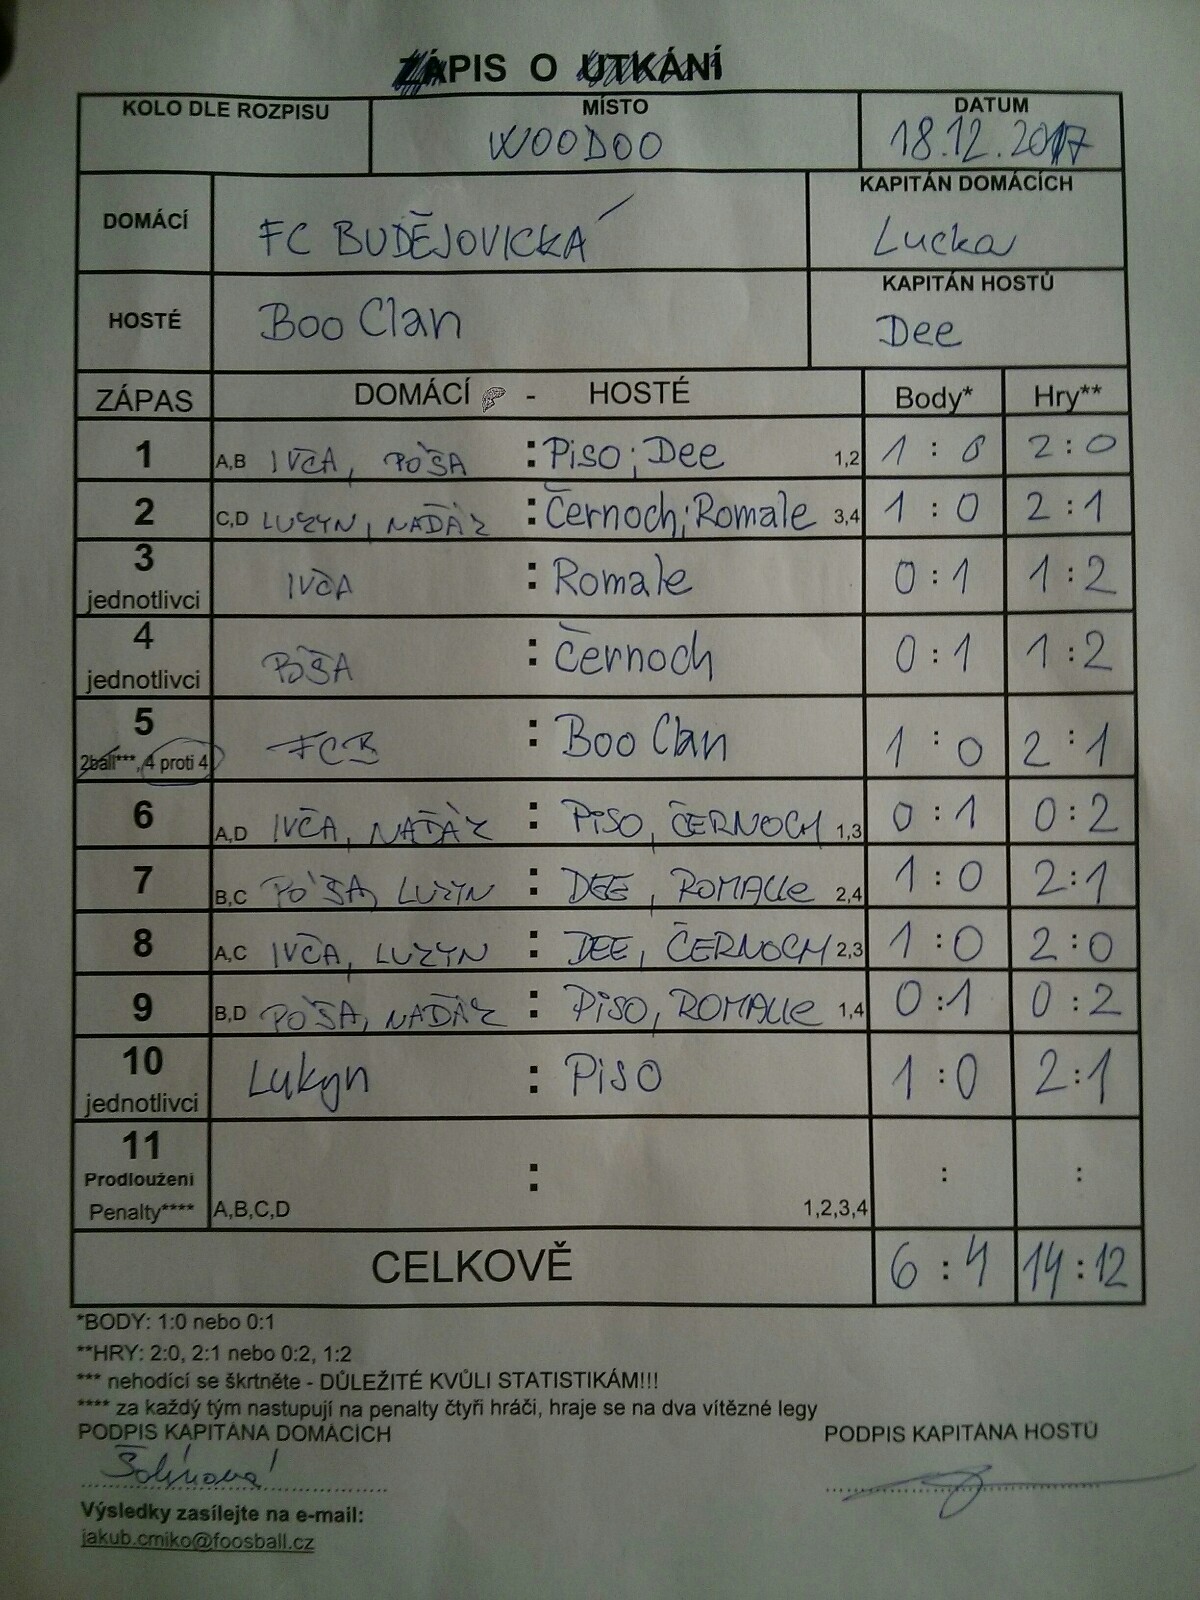 ZÁPIS O UTKÁNÍ
KOLO DLE ROZPISU MÍSTO DATUM
WOODOO 18.12.2017
DOMÁCÍ FC BUDĚJOVICKÁ KAPITÁN DOMÁCÍCH
Lucka
HOSTÉ Boo Clan KAPITÁN HOSTŮ
Dee
ZÁPAS DOMÁCÍ - HOSTÉ Body* Hry**
1 A,B IVČA, PÓŠA : Piso; Dee 1,2 1 : 0 2 : 0
2 C,D LUZYN, NAĎÁZ : Černoch; Romale 3,4 1 : 0 2 : 1
3 jednotlivci IVČA : Romale 0 : 1 1 : 2
4 jednotlivci PÓŠA : Černoch 0 : 1 1 : 2
5 2ball***, 4 proti 4 FCB : Boo Clan 1 : 0 2 : 1
6 A,D IVČA, NAĎÁZ : PISO, ČERNOCH 1,3 0 : 1 0 : 2
7 B,C PÓŠA, LUZYN : DEE, ROMALLE 2,4 1 : 0 2 : 1
8 A,C IVČA, LUZYN : DEE, ČERNOCH 2,3 1 : 0 2 : 0
9 B,D PÓŠA, NAĎÁZ : PISO, ROMALLE 1,4 0 : 1 0 : 2
10 jednotlivci Lukyn : PISO 1 : 0 2 : 1
11 Prodloužení Penalty**** A,B,C,D : 1,2,3,4 : :
CELKOVĚ 6 : 4 14 : 12
*BODY: 1:0 nebo 0:1
**HRY: 2:0, 2:1 nebo 0:2, 1:2
*** nehodící se škrtněte - DŮLEŽITÉ KVŮLI STATISTIKÁM!!!
**** za každý tým nastupují na penalty čtyři hráči, hraje se na dva vítězné legy
PODPIS KAPITÁNA DOMÁCÍCH PODPIS KAPITÁNA HOSTŮ
Výsledky zasílejte na e-mail:
jakub.cmiko@foosball.cz